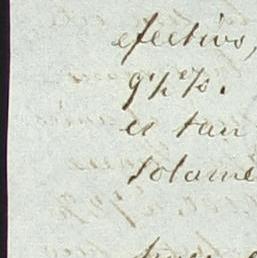 efectivo,
9½%.
es tan
solame